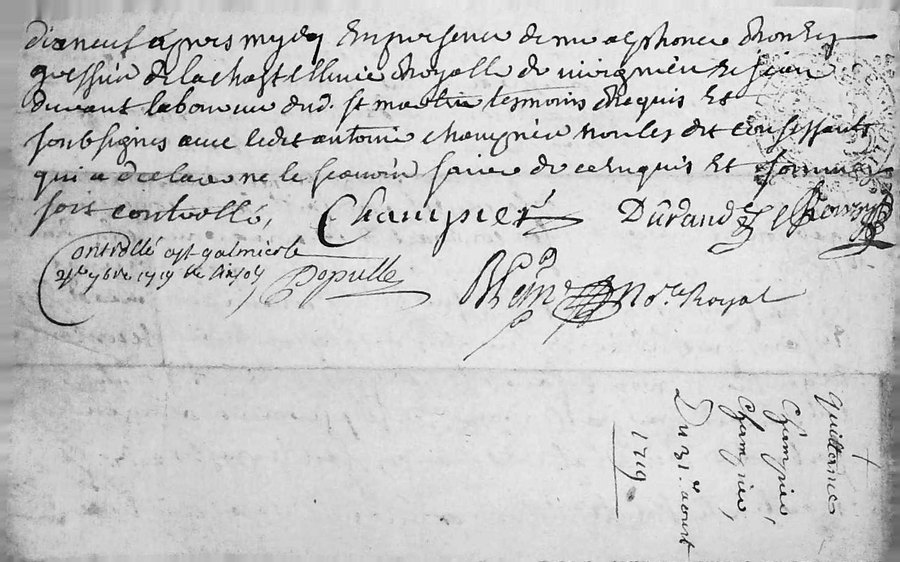 dixneuf apres mydy En presence de me alphonce Thonley
greffier de la chastellenie Royalle de virignieu et jean
durant laboureur dud. st martin tesmoins Requis Et
soubsignes avec ledit antoine champier non les dit confessants
qui a declare ne le scavoir faire de ce enquis Et
soit controllé,
Champier Durand
Controllé a st galmier le
7bre 1719
Dopulle
Nore Royal
Quittance
Champier,
Champier,
Du 31e aoust
1719